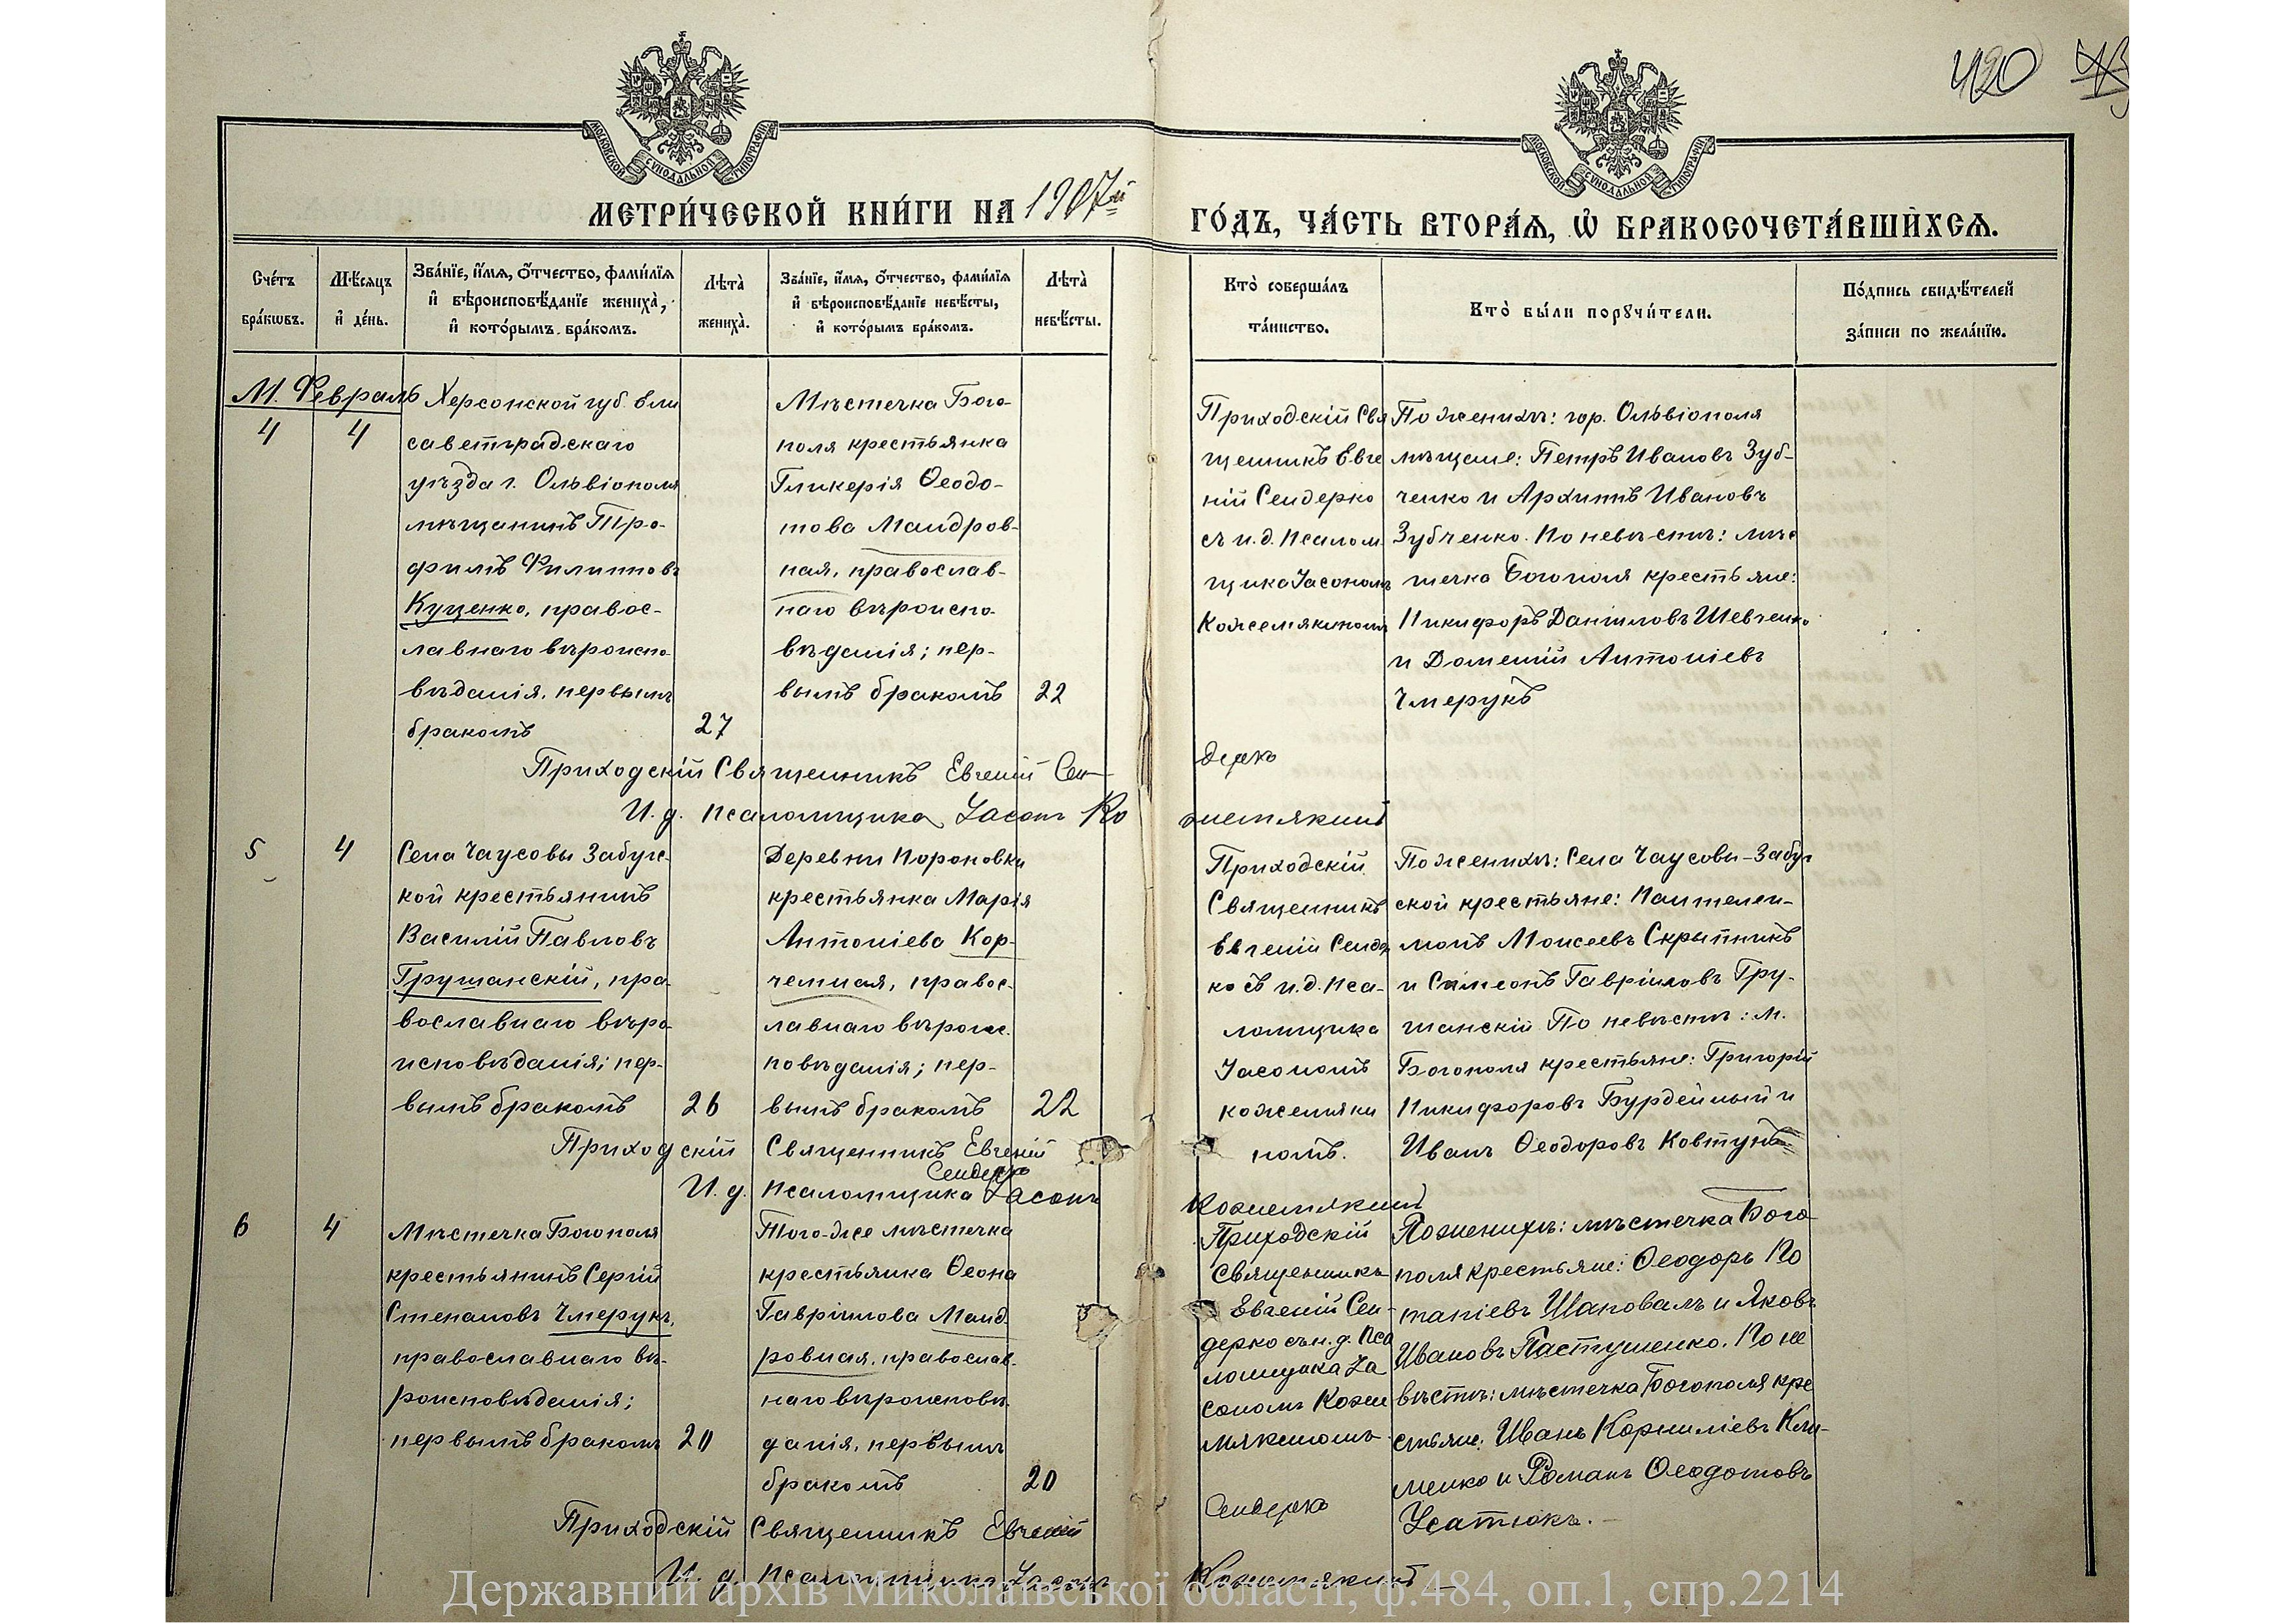 420
МОСКОВСКОЙ СѴНОДАЛЬНОЙ ТИПОГРАФІИ
МОСКОВСКОЙ СѴНОДАЛЬНОЙ ТИПОГРАФІИ
МЕТРИ́ЧЕСКОЙ КНИ́ГИ НА 1907й
ГО́ДЪ, ЧА́СТЬ ВТОРА́Ѧ, Ѡ҆ БРАКОСОЧЕТА́ВШИХСѦ.
Сче́тъ бра́кѡвъ.
Мѣ́сѧцъ и҆ де́нь.
Зва́нїе, и҆́мѧ, ѻ҆́тчество, фами́лїѧ
и҆ вѣроисповѣ́данїе жениха̀,
и҆ кото́рымъ бра́комъ.
Лѣта̀ жениха̀.
Зва́нїе, и҆́мѧ, ѻ҆́тчество, фами́лїѧ
и҆ вѣроисповѣ́данїе невѣ́сты,
и҆ кото́рымъ бра́комъ.
Лѣта̀ невѣ́сты.
Кто̀ соверша́лъ та́инство.
Кто̀ бы́ли порꙋчи́тели.
По́дпись свидѣ́телей за́писи по жела́нїю.
М. Февраль
4
4
Херсонской губ. Ели
саветградскаго
уѣзда г. Ольвіополя
мѣщанинъ Тро-
фимъ Филиповъ
Куценко, правос-
лавнаго вѣроиспо
вѣданія, первымъ
бракомъ
27
Мѣстечка Бого-
поля крестьянка
Гликерія Ѳеодо-
това Мандров-
ная, православ-
наго вѣроиспо
вѣданія; пер-
вымъ бракомъ
22
Приходскій Свя
щенникъ Евге
ній Сендерко
съ и.д. псалом
щика Іасономъ
Кожемякиномъ
По женихѣ: гор. Ольвіополя
мѣщане: Петръ Ивановъ Зуб-
ченко и Архипъ Ивановъ
Зубченко. По невѣстѣ: мѣс
течка Богополя крестьяне:
Никифоръ Даніиловъ Шевченко
и Дометій Антоніевъ
Чмерукъ
Приходскій Священникъ Евгеній Сен-
дерко
И. д. псаломщика Іасонъ Ко
жемякинъ
5
4
Села Чаусовы Забуж-
кой крестьянинъ
Василій Павловъ
Грушанскій, пра-
вославнаго вѣро
исповѣданія; пер-
вымъ бракомъ
26
Деревни Пороновки
крестьянка Марія
Антоніева Кор-
чемная, правос-
лавнаго вѣроис
повѣданія; пер-
вымъ бракомъ
22
Приходскій
Священникъ
Евгеній Сендер
ко съ и.д. пса-
ломщика
Іасономъ
кожемяки
номъ.
По женихѣ: Села Чаусовы-Забуж
ской крестьяне: Пантелеи-
монъ Моисеевъ Скрыпникъ
и Симеонъ Гавріиловъ Гру-
шанскій По невѣстѣ: м.
Богополя крестьяне: Григорій
Никифоровъ Бурдейный и
Иванъ Ѳеодоровъ Ковтунъ
Приходскій Священникъ Евгеній
Сендерко
И. д. псаломщика Іасонъ
Кожемякинъ
6
4
Мѣстечка Богополя
крестьянинъ Сергій
Степановъ Чмерукъ,
православнаго вѣ-
роисповѣданія;
первымъ бракомъ
20
Того-же мѣстечка
крестьянка Ѳеона
Гавріилова Манд
ровная, православ-
наго вѣроисповѣ
данія, первымъ
бракомъ
20
Приходскій
Священникъ
Евгеній Сен-
дерко съ и. д. пса
ломщика Іа
сономъ Коже
мякиномъ
По женихѣ: мѣстечка Бого
поля крестьяне: Ѳеодоръ По
тапіевъ Шаповалъ и Яковъ
Ивановъ Пастушенко. По не
вѣстѣ: мѣстечка Богополя кре
стьяне: Иванъ Корниліевъ Кли-
менко и Романъ Ѳеодотовъ
Усатюкъ.
Приходскій Священникъ Евгеній
Сендерко
И. д. псаломщика Іасонъ
Кожемякинъ
Державний архів Миколаївської області, ф.484, оп.1, спр.2214